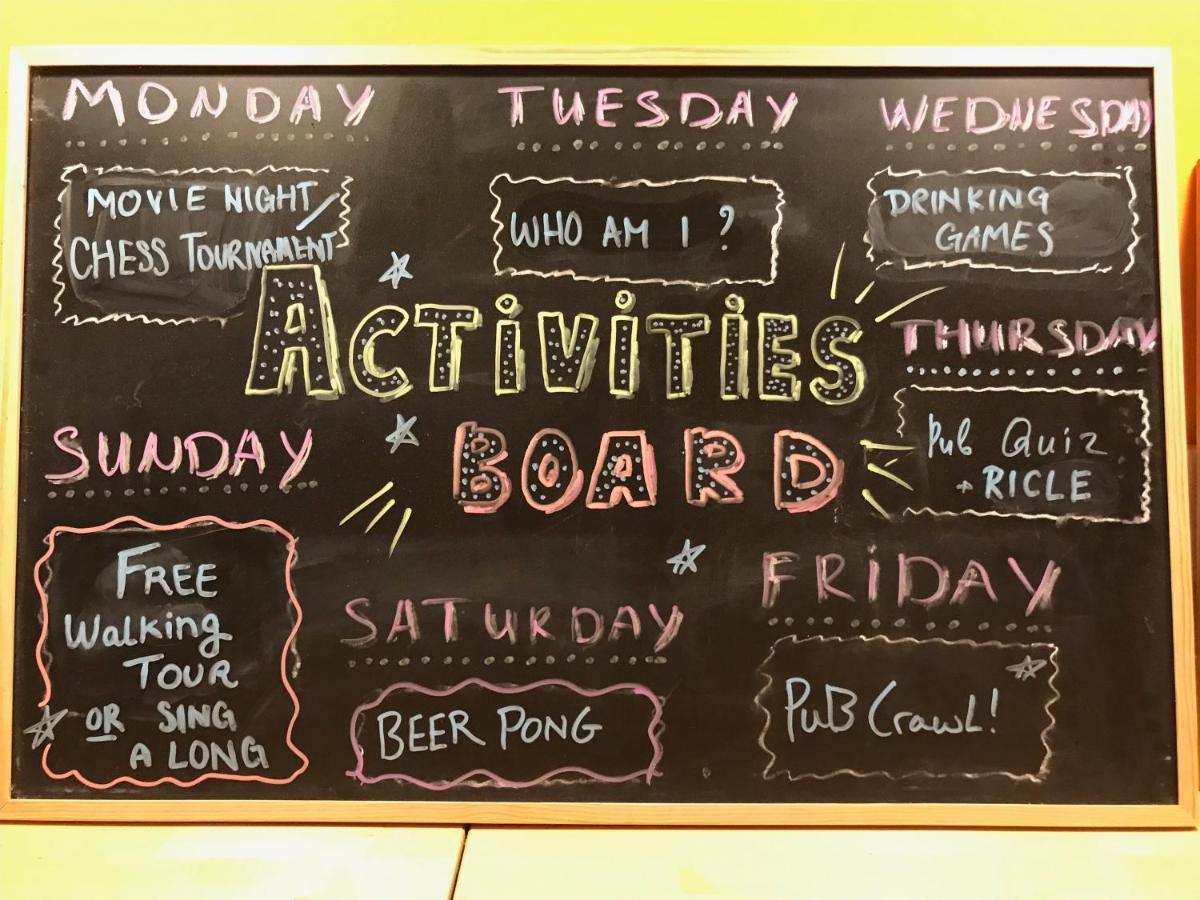 MONDAY
MOVIE NIGHT/
CHESS TOURNAMENT
TUESDAY
WHO AM I ?
WEDNESDAY
DRINKING
GAMES
ACTIVITIES
BOARD
THURSDAY
Pub Quiz
+ RICLE
FRIDAY
PUB CrawL!
SATURDAY
BEER PONG
SUNDAY
FREE
Walking
TOUR
OR SING
A LONG